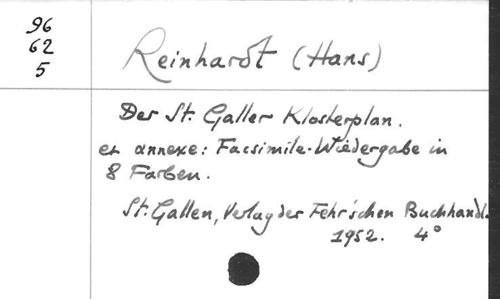 96
62
5
Reinhardt (Hans)
Der St. Galler Klosterplan.
en annexe: Facsimile-Wiedergabe in
8 Farben.
St. Gallen, Verlag der Fehr'schen Buchhandl.
1952. 4°